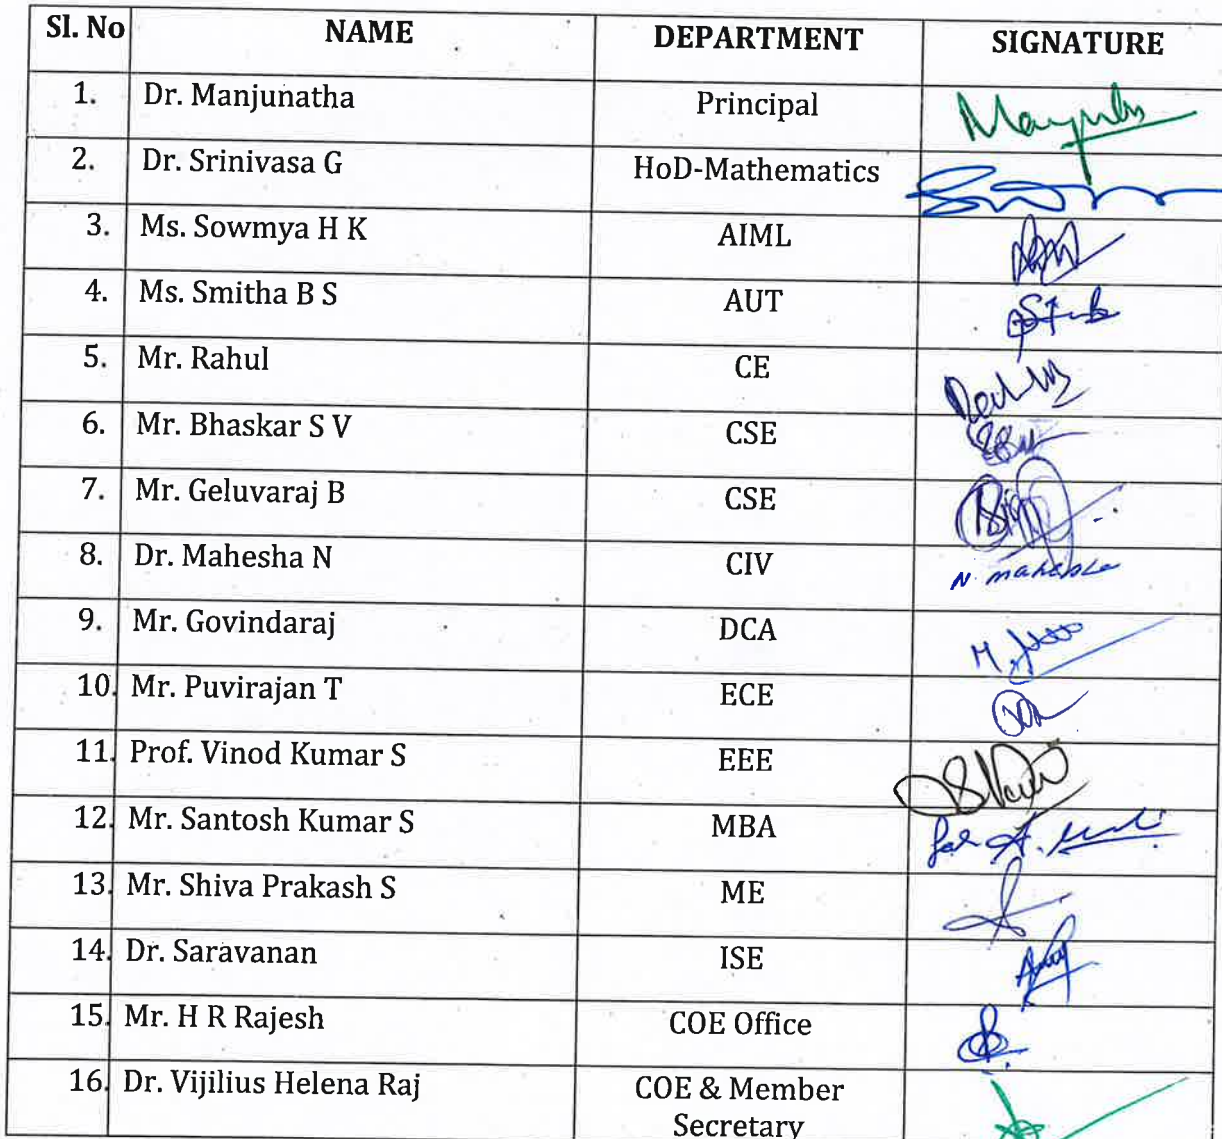 Sl. No NAME DEPARTMENT SIGNATURE
1. Dr. Manjunatha Principal
2. Dr. Srinivasa G HoD-Mathematics
3. Ms. Sowmya H K AIML
4. Ms. Smitha B S AUT
5. Mr. Rahul CE
6. Mr. Bhaskar S V CSE
7. Mr. Geluvaraj B CSE
8. Dr. Mahesha N CIV N. mahesha
9. Mr. Govindaraj DCA
10. Mr. Puvirajan T ECE
11. Prof. Vinod Kumar S EEE
12. Mr. Santosh Kumar S MBA
13. Mr. Shiva Prakash S ME
14. Dr. Saravanan ISE
15. Mr. H R Rajesh COE Office
16. Dr. Vijilius Helena Raj COE & Member
Secretary